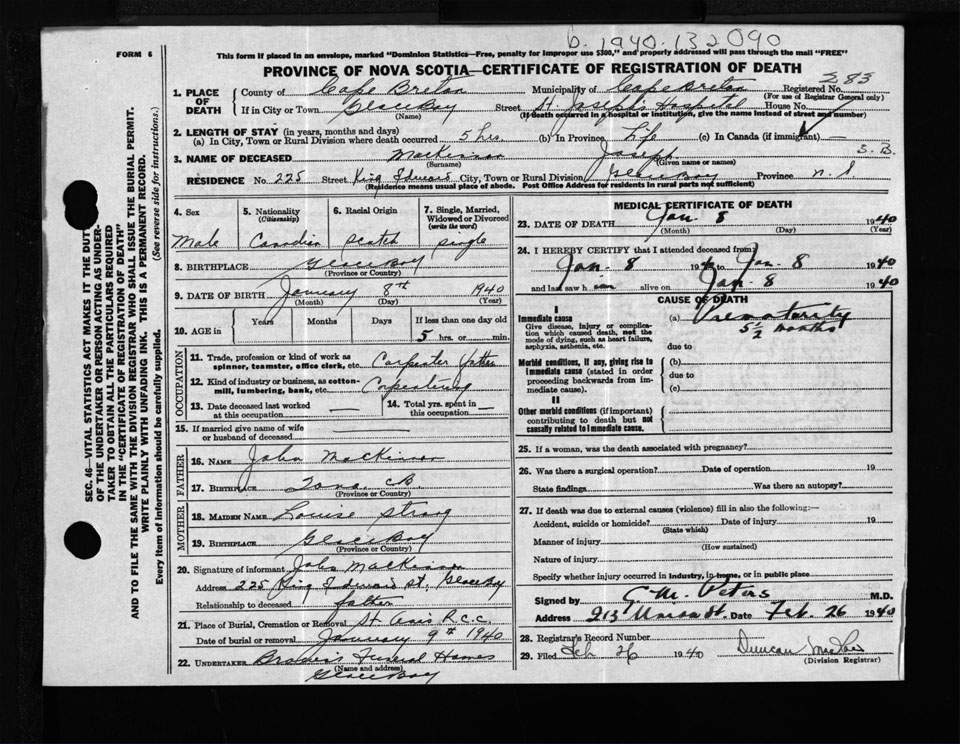 b. 1940.132090
FORM 6
This form if placed in an envelope, marked "Dominion Statistics—Free, penalty for improper use $300," and properly addressed will pass through the mail "FREE"
PROVINCE OF NOVA SCOTIA—CERTIFICATE OF REGISTRATION OF DEATH
1. PLACE OF DEATH
County of Cape Breton Municipality of Cape Breton Registered No. 283
(For use of Registrar General only)
If in City or Town Glace Bay Street St. Joseph's Hospital House No.
(Name) (If death occurred in a hospital or institution, give the name instead of street and number)
2. LENGTH OF STAY (in years, months and days)
(a) In City, Town or Rural Division where death occurred 5 hrs. (b) In Province Life (c) In Canada (if immigrant) —
3. NAME OF DECEASED MacKinnon Joseph S.B.
(Surname) (Given name or names)
RESIDENCE No. 225 Street King Edward City, Town or Rural Division Glace Bay Province N.S
(Residence means usual place of abode. Post Office Address for residents in rural parts not sufficient)
4. Sex Male
5. Nationality (Citizenship) Canadian
6. Racial Origin Scotch
7. Single, Married, Widowed or Divorced (write the word) single
8. BIRTHPLACE Glace Bay
(Province or Country)
9. DATE OF BIRTH January 8th 1940
(Month) (Day) (Year)
10. AGE in Years Months Days If less than one day old
5 hrs. or min.
OCCUPATION
11. Trade, profession or kind of work as spinner, teamster, office clerk, etc. Carpenter father
12. Kind of industry or business, as cotton-mill, lumbering, bank, etc. Carpentering
13. Date deceased last worked at this occupation —
14. Total yrs. spent in this occupation —
15. If married give name of wife or husband of deceased —
FATHER
16. NAME John MacKinnon
17. BIRTHPLACE Iona C.B
(Province or Country)
MOTHER
18. MAIDEN NAME Louise Strong
19. BIRTHPLACE Glace Bay
(Province or Country)
20. Signature of informant John MacKinnon
Address 225 King Edward St. Glace Bay
Relationship to deceased father
21. Place of Burial, Cremation or Removal St Anns R.C.C.
Date of burial or removal January 9th 1940
22. UNDERTAKER Brown's Funeral Homes
(Name and address)
Glace Bay
MEDICAL CERTIFICATE OF DEATH
23. DATE OF DEATH Jan. 8 1940
(Month) (Day) (Year)
24. I HEREBY CERTIFY that I attended deceased from
Jan. 8 1940 to Jan. 8 1940
and last saw h im alive on Jan. 8 1940
CAUSE OF DEATH
I
Immediate cause
Give disease, injury or complication which caused death, not the mode of dying, such as heart failure, asphyxia, asthenia, etc.
(a) Prematurity
5½ months
due to
Morbid conditions, if any, giving rise to immediate cause (stated in order proceeding backwards from immediate cause).
(b)
due to
(c)
II
Other morbid conditions (if important) contributing to death but not causally related to immediate cause.
25. If a woman, was the death associated with pregnancy?
26. Was there a surgical operation? Date of operation 19
State findings Was there an autopsy?
27. If death was due to external causes (violence) fill in also the following:—
Accident, suicide or homicide? Date of injury 19
(State which)
Manner of injury
(How sustained)
Nature of injury
Specify whether injury occurred in industry, in home, or in public place
Signed by G.M. Peters M.D.
Address 213 Union St. Date Feb. 26 1940
28. Registrar's Record Number
29. Filed Feb 26 1940 Duncan
(Division Registrar)
SEC. 46—VITAL STATISTICS ACT MAKES IT THE DUTY
OF THE UNDERTAKER OR PERSON ACTING AS UNDERTAKER TO OBTAIN ALL THE PARTICULARS REQUIRED
IN THE "CERTIFICATE OF REGISTRATION OF DEATH"
AND TO FILE THE SAME WITH THE DIVISION REGISTRAR WHO SHALL ISSUE THE BURIAL PERMIT.
WRITE PLAINLY WITH UNFADING INK. THIS IS A PERMANENT RECORD.
Every item of information should be carefully supplied. (See reverse side for instructions.)